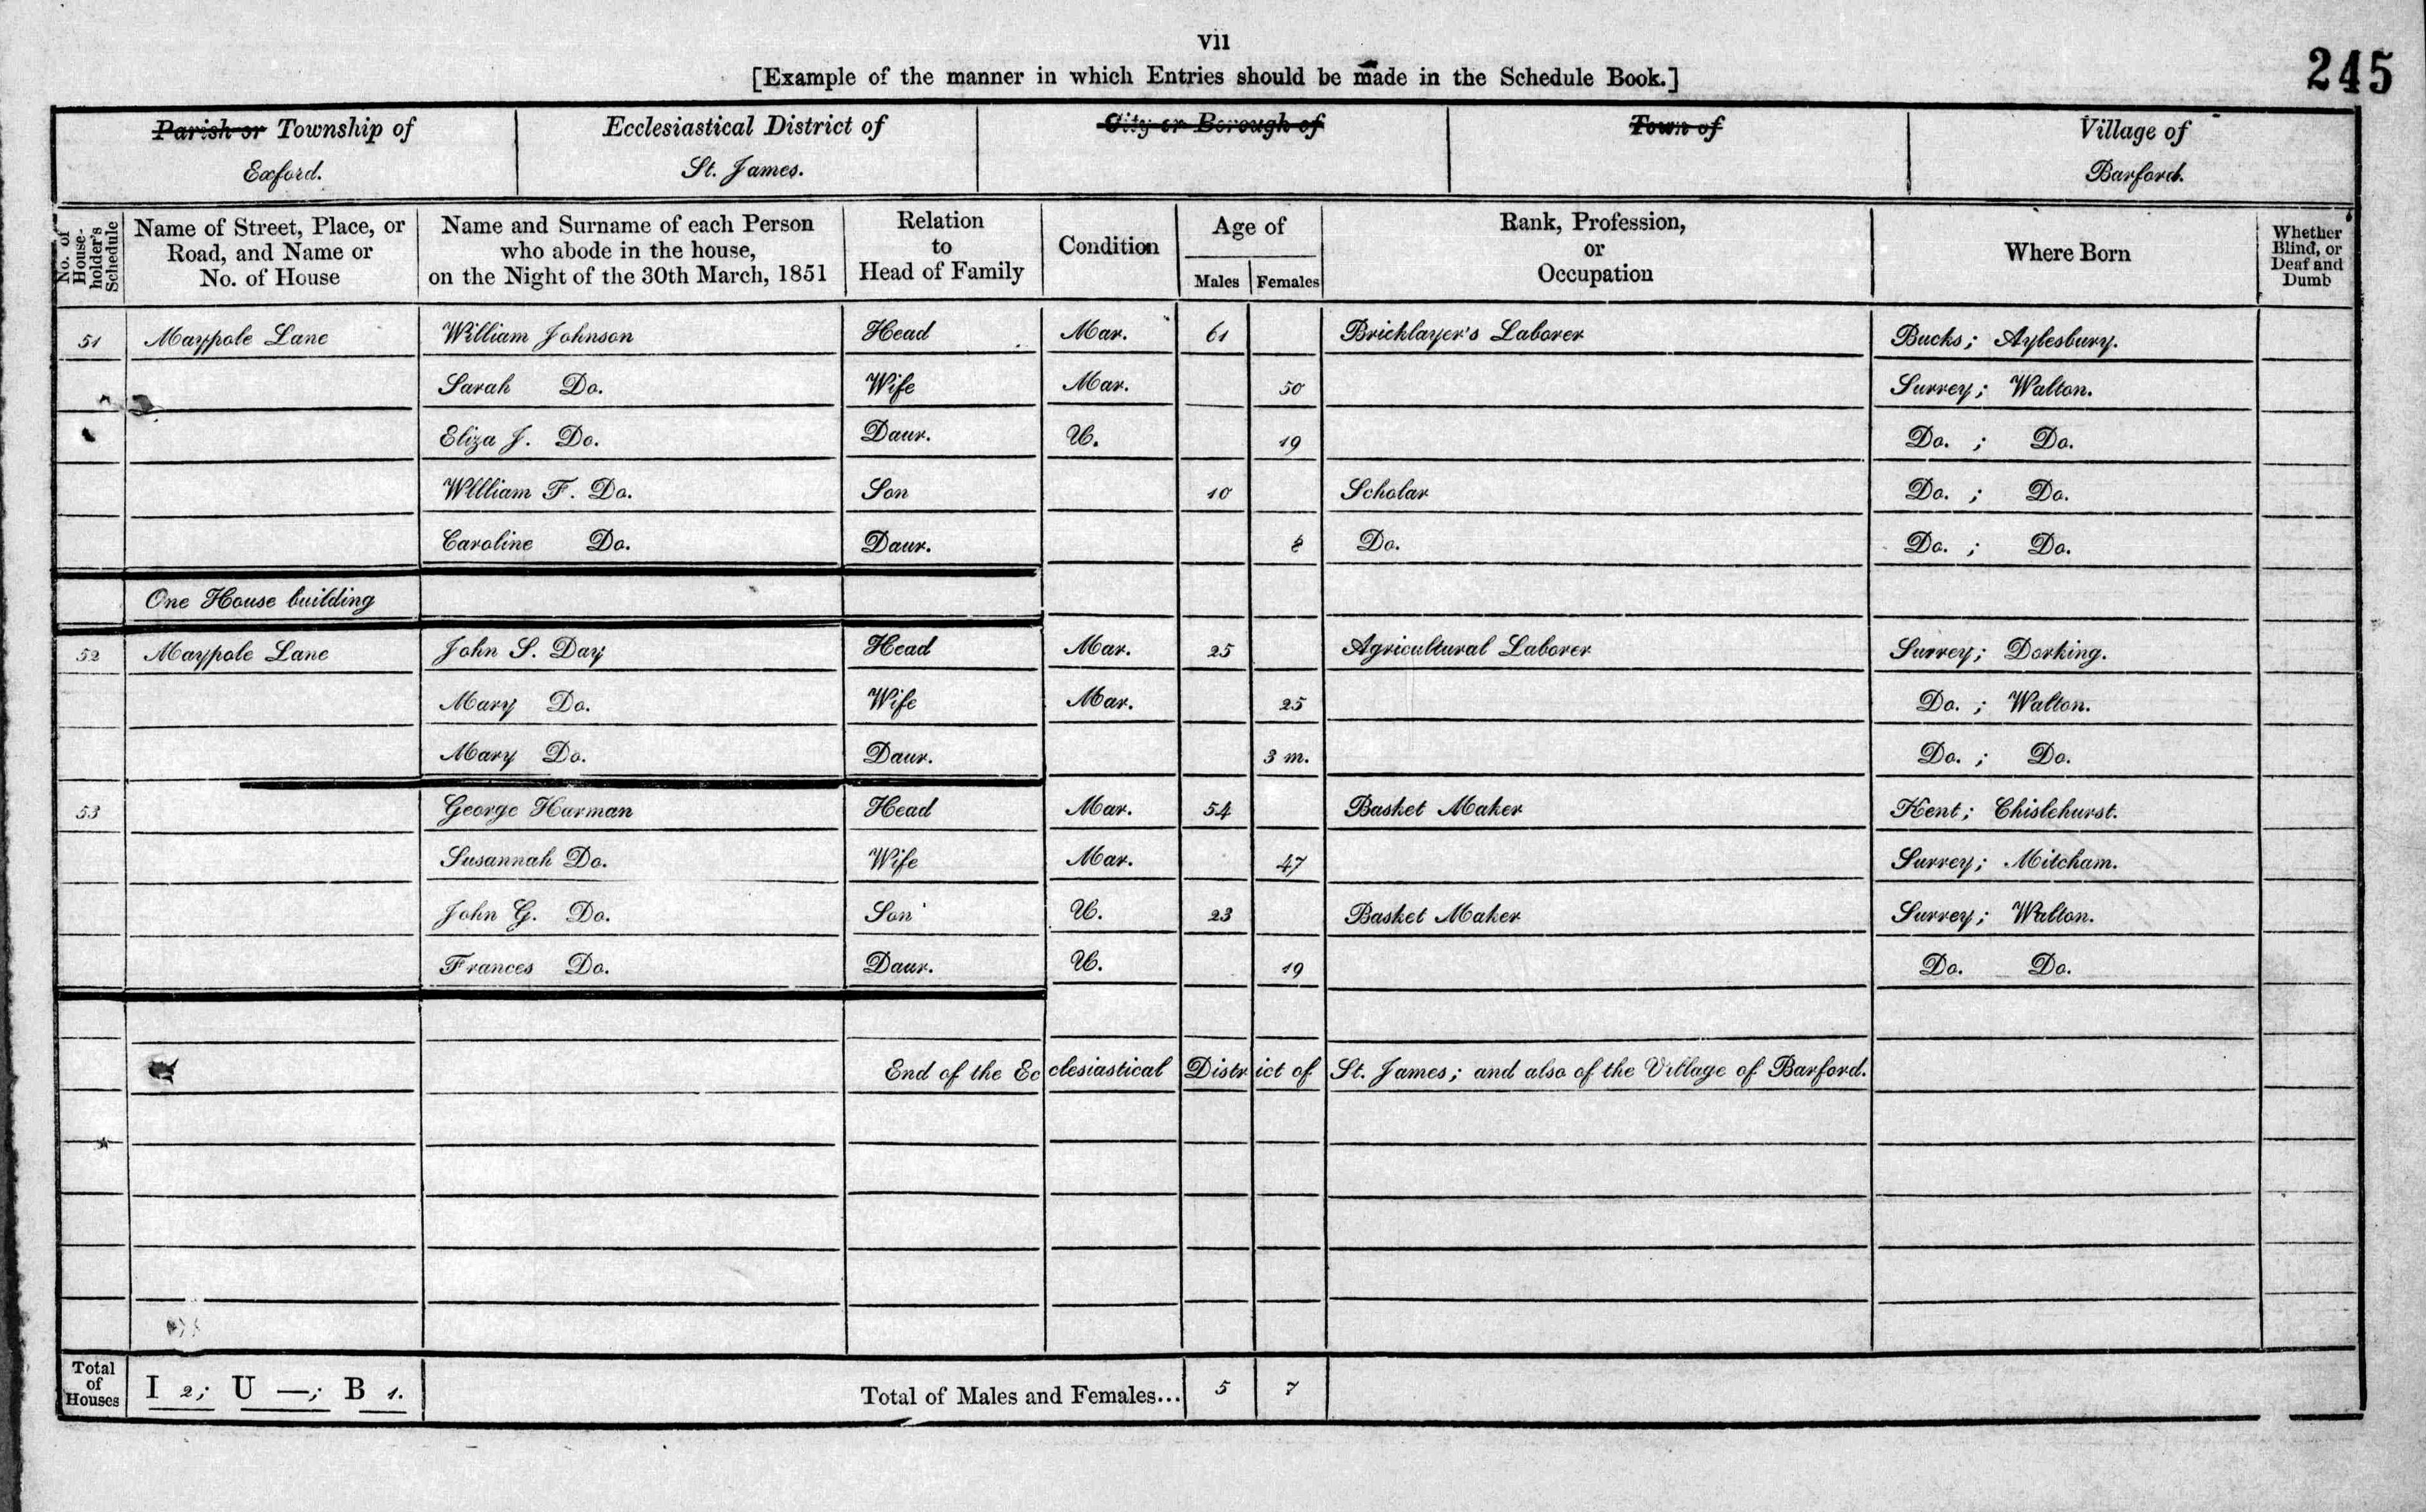 vii
245
[Example of the manner in which Entries should be made in the Schedule Book.]
Parish or Township of Ecclesiastical District of City or Borough of Town of Village of
Exford. St. James. Barford.
No. of House-holder's Schedule Name of Street, Place, or Road, and Name or No. of House Name and Surname of each Person who abode in the house, on the Night of the 30th March, 1851 Relation to Head of Family Condition Age of Males Females Rank, Profession, or Occupation Where Born Whether Blind, or Deaf and Dumb
51 Maypole Lane William Johnson Head Mar. 61 Bricklayer's Laborer Bucks; Aylesbury.
Sarah Do. Wife Mar. 50 Surrey; Walton.
Eliza J. Do. Daur. U. 19 Do. ; Do.
William F. Do. Son 10 Scholar Do. ; Do.
Caroline Do. Daur. 8 Do. Do. ; Do.
One House building
52 Maypole Lane John S. Day Head Mar. 25 Agricultural Laborer Surrey; Dorking.
Mary Do. Wife Mar. 25 Do. ; Walton.
Mary Do. Daur. 3 m. Do. ; Do.
53 George Harman Head Mar. 54 Basket Maker Kent; Chislehurst.
Susannah Do. Wife Mar. 47 Surrey; Mitcham.
John G. Do. Son U. 23 Basket Maker Surrey; Walton.
Frances Do. Daur. U. 19 Do. Do.
End of the Ecclesiastical District of St. James; and also of the Village of Barford.
Total of Houses I 2; U —; B 1. Total of Males and Females... 5 7